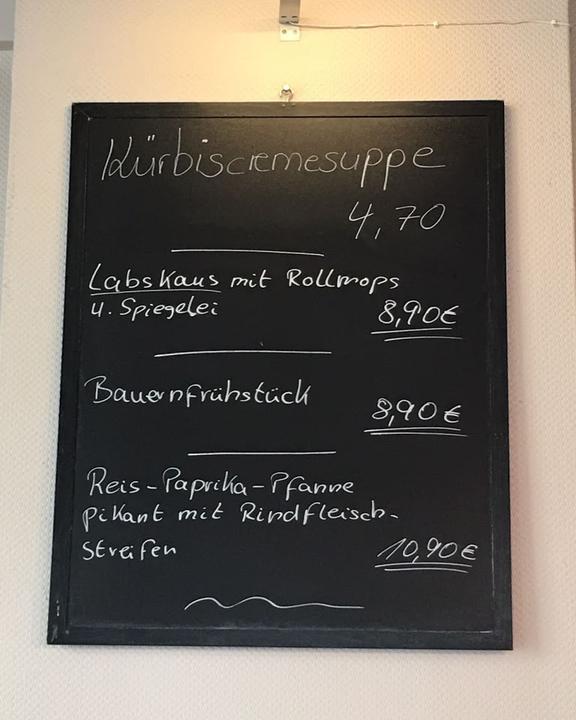 Kürbiscremesuppe
4,70
Labskaus mit Rollmops
u. Spiegelei
8,90€
Bauernfrühstück
8,90€
Reis-Paprika-Pfanne
pikant mit Rindfleisch-
streifen
10,90€